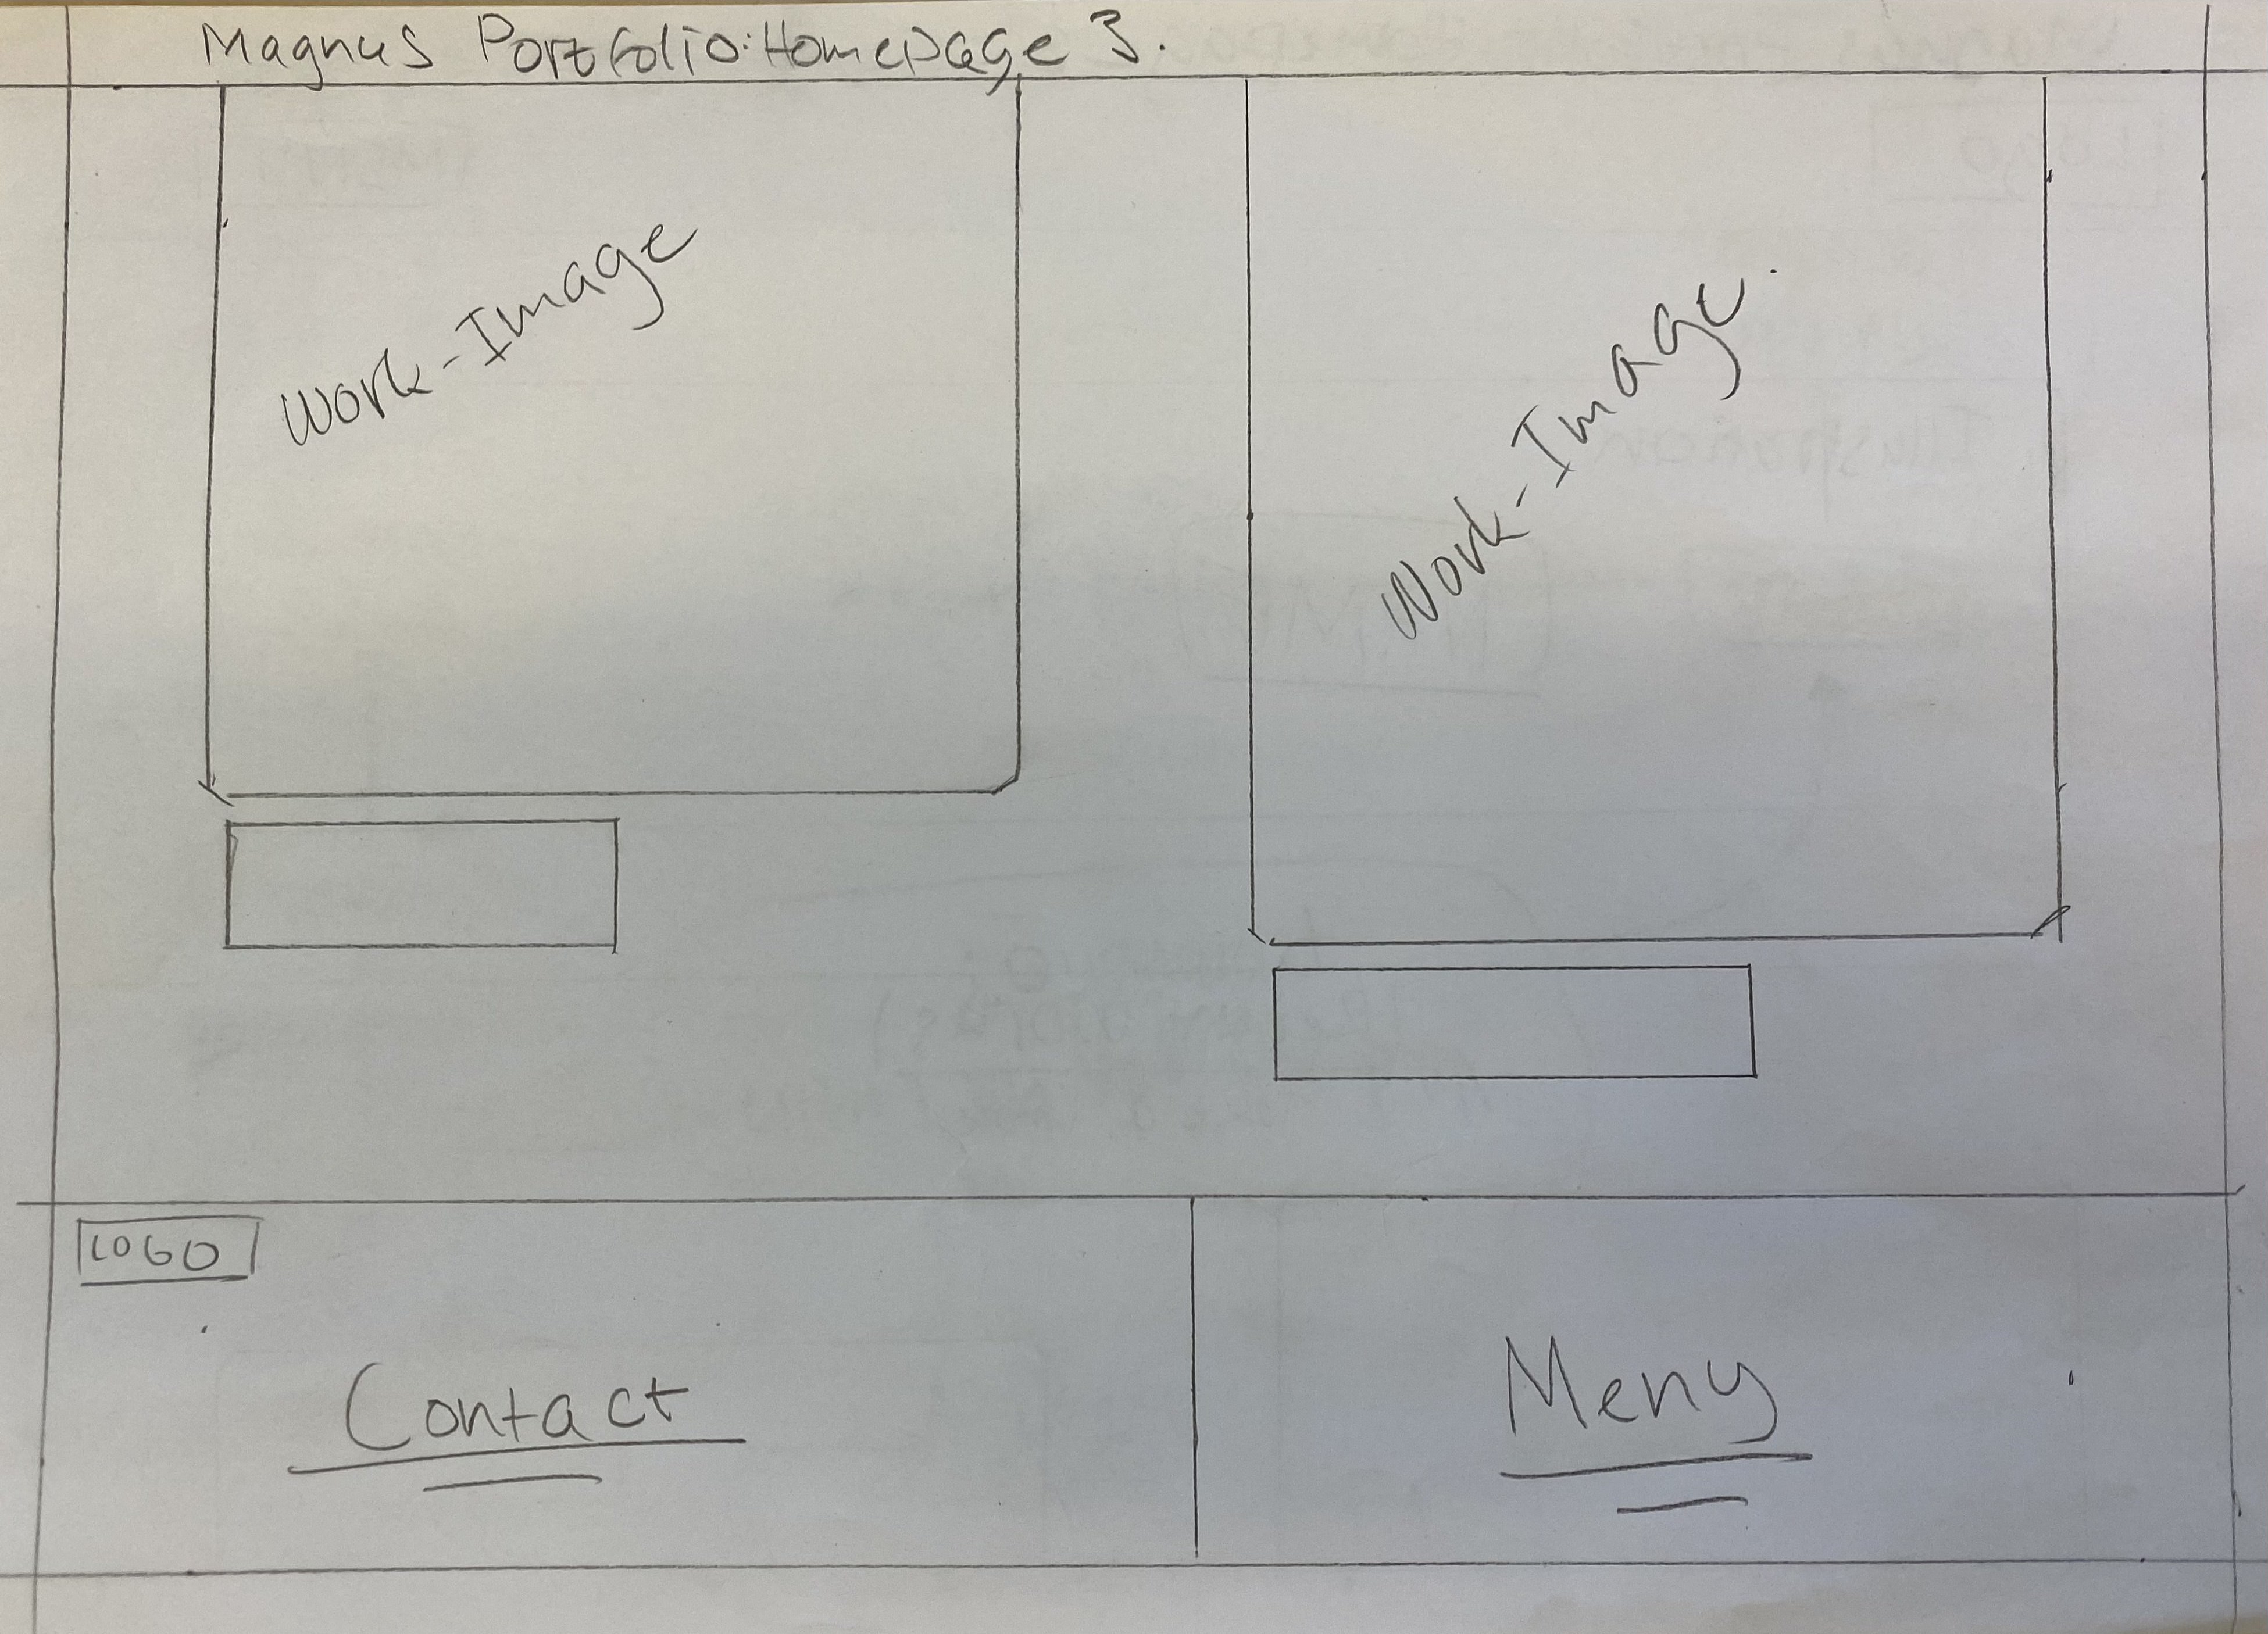 Magnus Portfolio: Homepage 3.
Work-Image
Work-Image.
LOGO
Contact
Meny